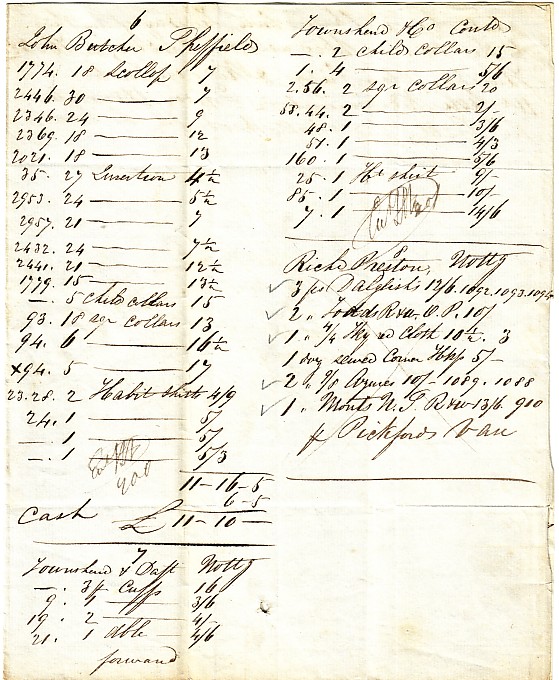 6
John Butcher Sheffield
1774. 18 Scollop 7
2446. 30 — 7
2346. 24 — 9
2369. 18 — 12
2021. 18 — 13
35. 27 Insertion 4½
2953. 24 — 5½
2957. 21 — 7
2432. 24 — 7½
2441. 21 — 12½
1779. 15 — 13½
—. 5 child collars 15
93. 18 sqr collars 13
94. 6 — 16½
x94. 5 — 17
23.28. 2 Habit shirt 4/9
24. 1 — 5/
— 1 — 5/
—. 1 — 5/3
900
11-16-5
6-5
Cash £11-10-
7
Townshend & Daft Nottg
—. 34 Cuffs 16
9. 4 — 3/6
19. 2 — 4/-
21. 1 dble 4/6
forward
Townshend & Co Contd
—. 2 child collars 15
1. 4 — 5/6
2.56. 2 sqr collars 20
58.44. 2 — 2/-
48. 1 — 3/6
51. 1 — 4/3
160. 1 — 5/6
25. 1 Ht shirt 9/-
85. 1 — 10/
7. 1 — 14/6
8
Richd Preston, Nottg
3 ps Dalglish 13/6. 1092. 1093. 1094
2 " Todds R&w. O.P. 10/
1 " 4/4 Thy red Cloth 10½. 3
1 doz sewed Corner Hkfs 5/-
2 " 9/8 Azures 10/- 1089. 1088
1 " Monts N.S. R&w 13/6 900
p Pickfords Van